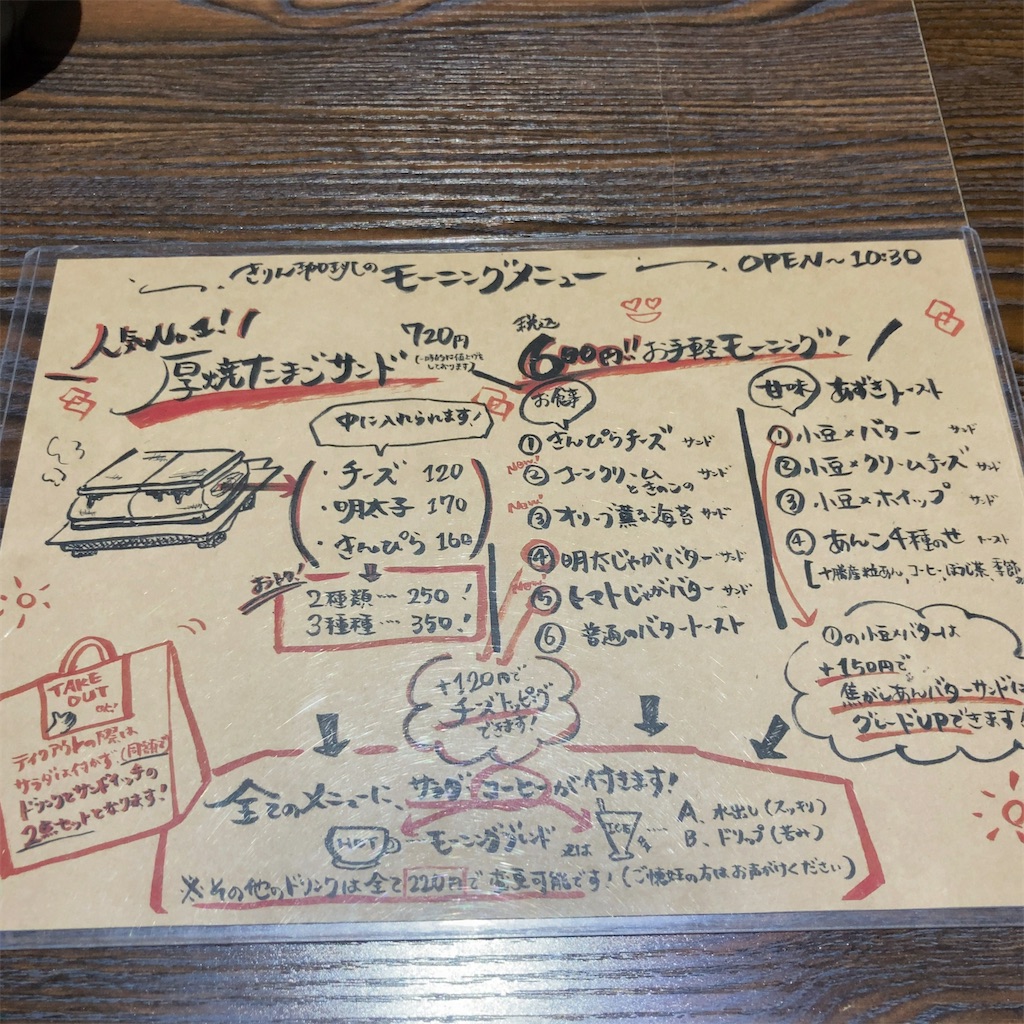 きりん珈琲のモーニングメニュー
OPEN〜10:30
人気No.1!!
厚焼たまごサンド
720円
(一時的に値上げを
しております)
中に入れられます!
・チーズ 120
・明太子 170
・きんぴら 160
おトク!
2種類… 250!
3種種… 350!
税込
600円!!お手軽モーニング!
お食事
①きんぴらチーズ サンド
New!
②コーンクリーム
ときのこの サンド
New!
③オリーブ薫る海苔 サンド
④明太じゃがバター サンド
New!
⑤トマトじゃがバター サンド
⑥普通のバタートースト
+120円で
チーズトッピング
できます!
甘味 あずきトースト
①小豆×バター サンド
②小豆×クリームチーズ サンド
③小豆×ホイップ サンド
④あんこ4種のせ トースト
[十勝産粒あん、コーヒー、ほうじ茶、季節
①の小豆×バターは
+150円で
焦がしあんバターサンドに
グレードUPできます!
TAKE
OUT
テイクアウトの際は
サラダは付かず(同額で)
ドリンクとサンドイッチの
2点セットとなります!
全てのメニューに、サラダ コーヒーが付きます!
HOT…モーニングブレンド
又は
ICE…
A、水出し(スッキリ)
B、ドリップ(苦み)
※その他のドリンクは全て220円で変更可能です!(ご懐妊の方はお声がけください)